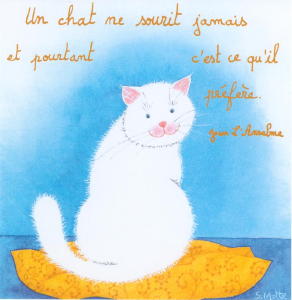 Un chat ne sourit jamais
et pourtant c'est ce qu'il
préfère.
Jean L'Anselme